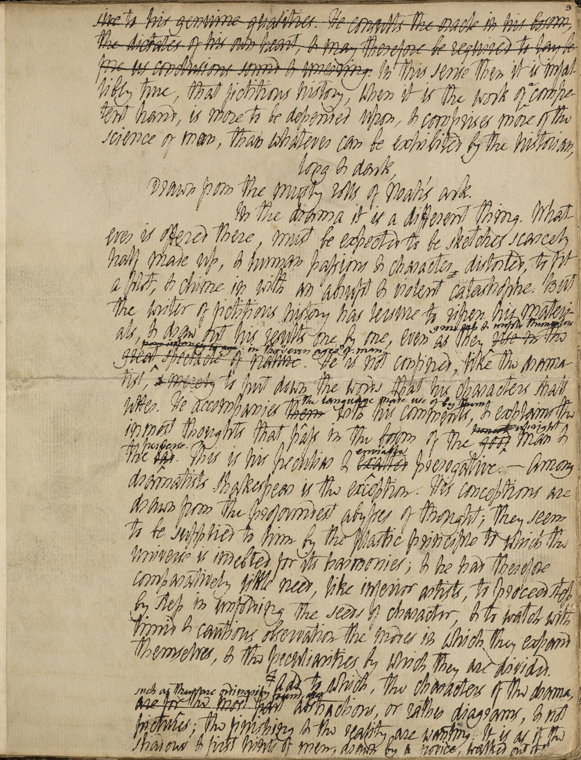 3
sive to his genuine qualities. He consults the oracle in his bosom,
the dictates of his own heart, & may therefore be
conclusions sound & unerring. In this sense then it is infal-
libly true, that fictitious history, when it is the work of a compe-
tent hand, is more to be depended upon, & comprises more of the
science of man, than whatever can be exhibited by the historian,
long & dark,
Drawn from the musty rolls of Noah's ark.
In the drama it is a different thing. What-
ever is offered there, must be expected to be sketches scarcely
half made up, & human passions & character distorted, to fit
a plot, & chime in with an abrupt & violent catastrophe. But
the writer of fictitious history has leisure to ripen his materi-
als, & draw out his results one by one, even as they
grow up &
in the
spectacle of nature. He is not confined, like the drama-
tist, & merely to put down the words that his characters shall
the language made use of by
utter. He accompanies them with his comments, & explains the
upright
inmost thoughts that pass in the bosom of the good man &
perverse enviable
the This is his peculiar & exalted prerogative.— Among
dramatists Shakespear is the exception. His conceptions are
drawn from the profoundest abysses of thought; they seem
to be supplied to him by the plastic principle to which the
universe is indebted for its harmonies; & he had therefore
comparatively little need, like inferior artists, to proceed step
by step in unfolding the seeds of character, & to watch with
timid & cautious observation the modes in which they expand
themselves, & the peculiarities by which they are divided.
add to which, the characters of the drama,
such as they are
are for the most part abstractions, or rather diagrams, & not
pictures; the finishing & the reality are wanting. It is as if the
shadows & first hints of men, drawn by a novice, walked out of the